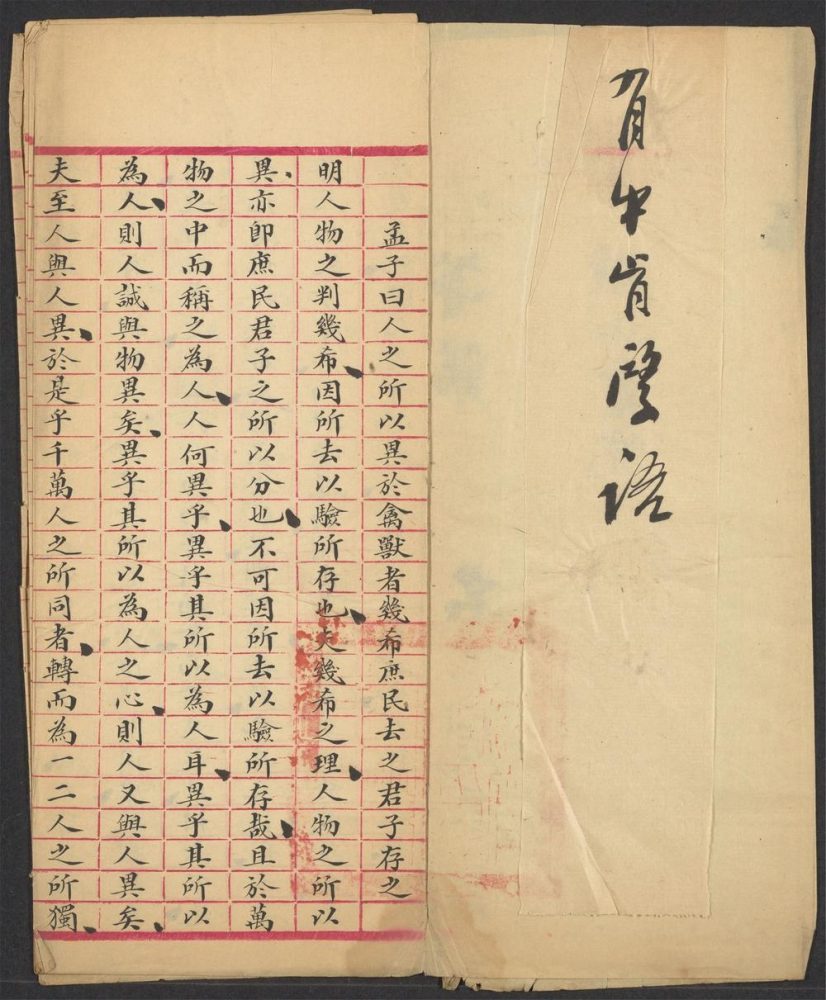 有中肯綮語
孟子曰人之所以異於禽獸者幾希庶民去之君子存之
明人物之判幾希、因所去以驗所存也、夫幾希之理、人物之所以
異、亦即庶民君子之所以分也、不可因所去以驗所存哉、且於萬
物之中而稱之為人、人何異乎、異乎其所以為人耳、異乎其所以
為人、則人誠與物異矣、異乎其所以為人之心、則人又與人異矣、
夫至人與人異、於是乎千萬人之所同者、轉而為一二人之所獨、